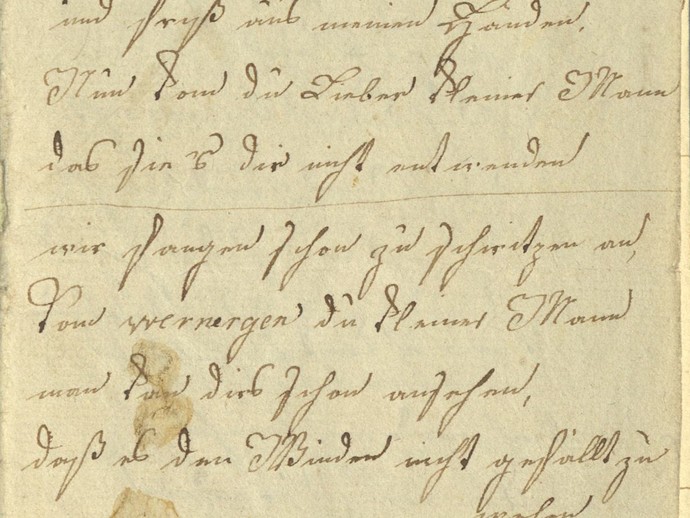 und friß aus meinen Händen.
Nun kom du Lieber kleiner Mann
das sie's dir nicht entwenden
wir fangen schon zu schwitzen an,
kom du kleiner Mann
man kan dirs schon ansehen,
daß es den Winden nicht gefällt zu
wehen